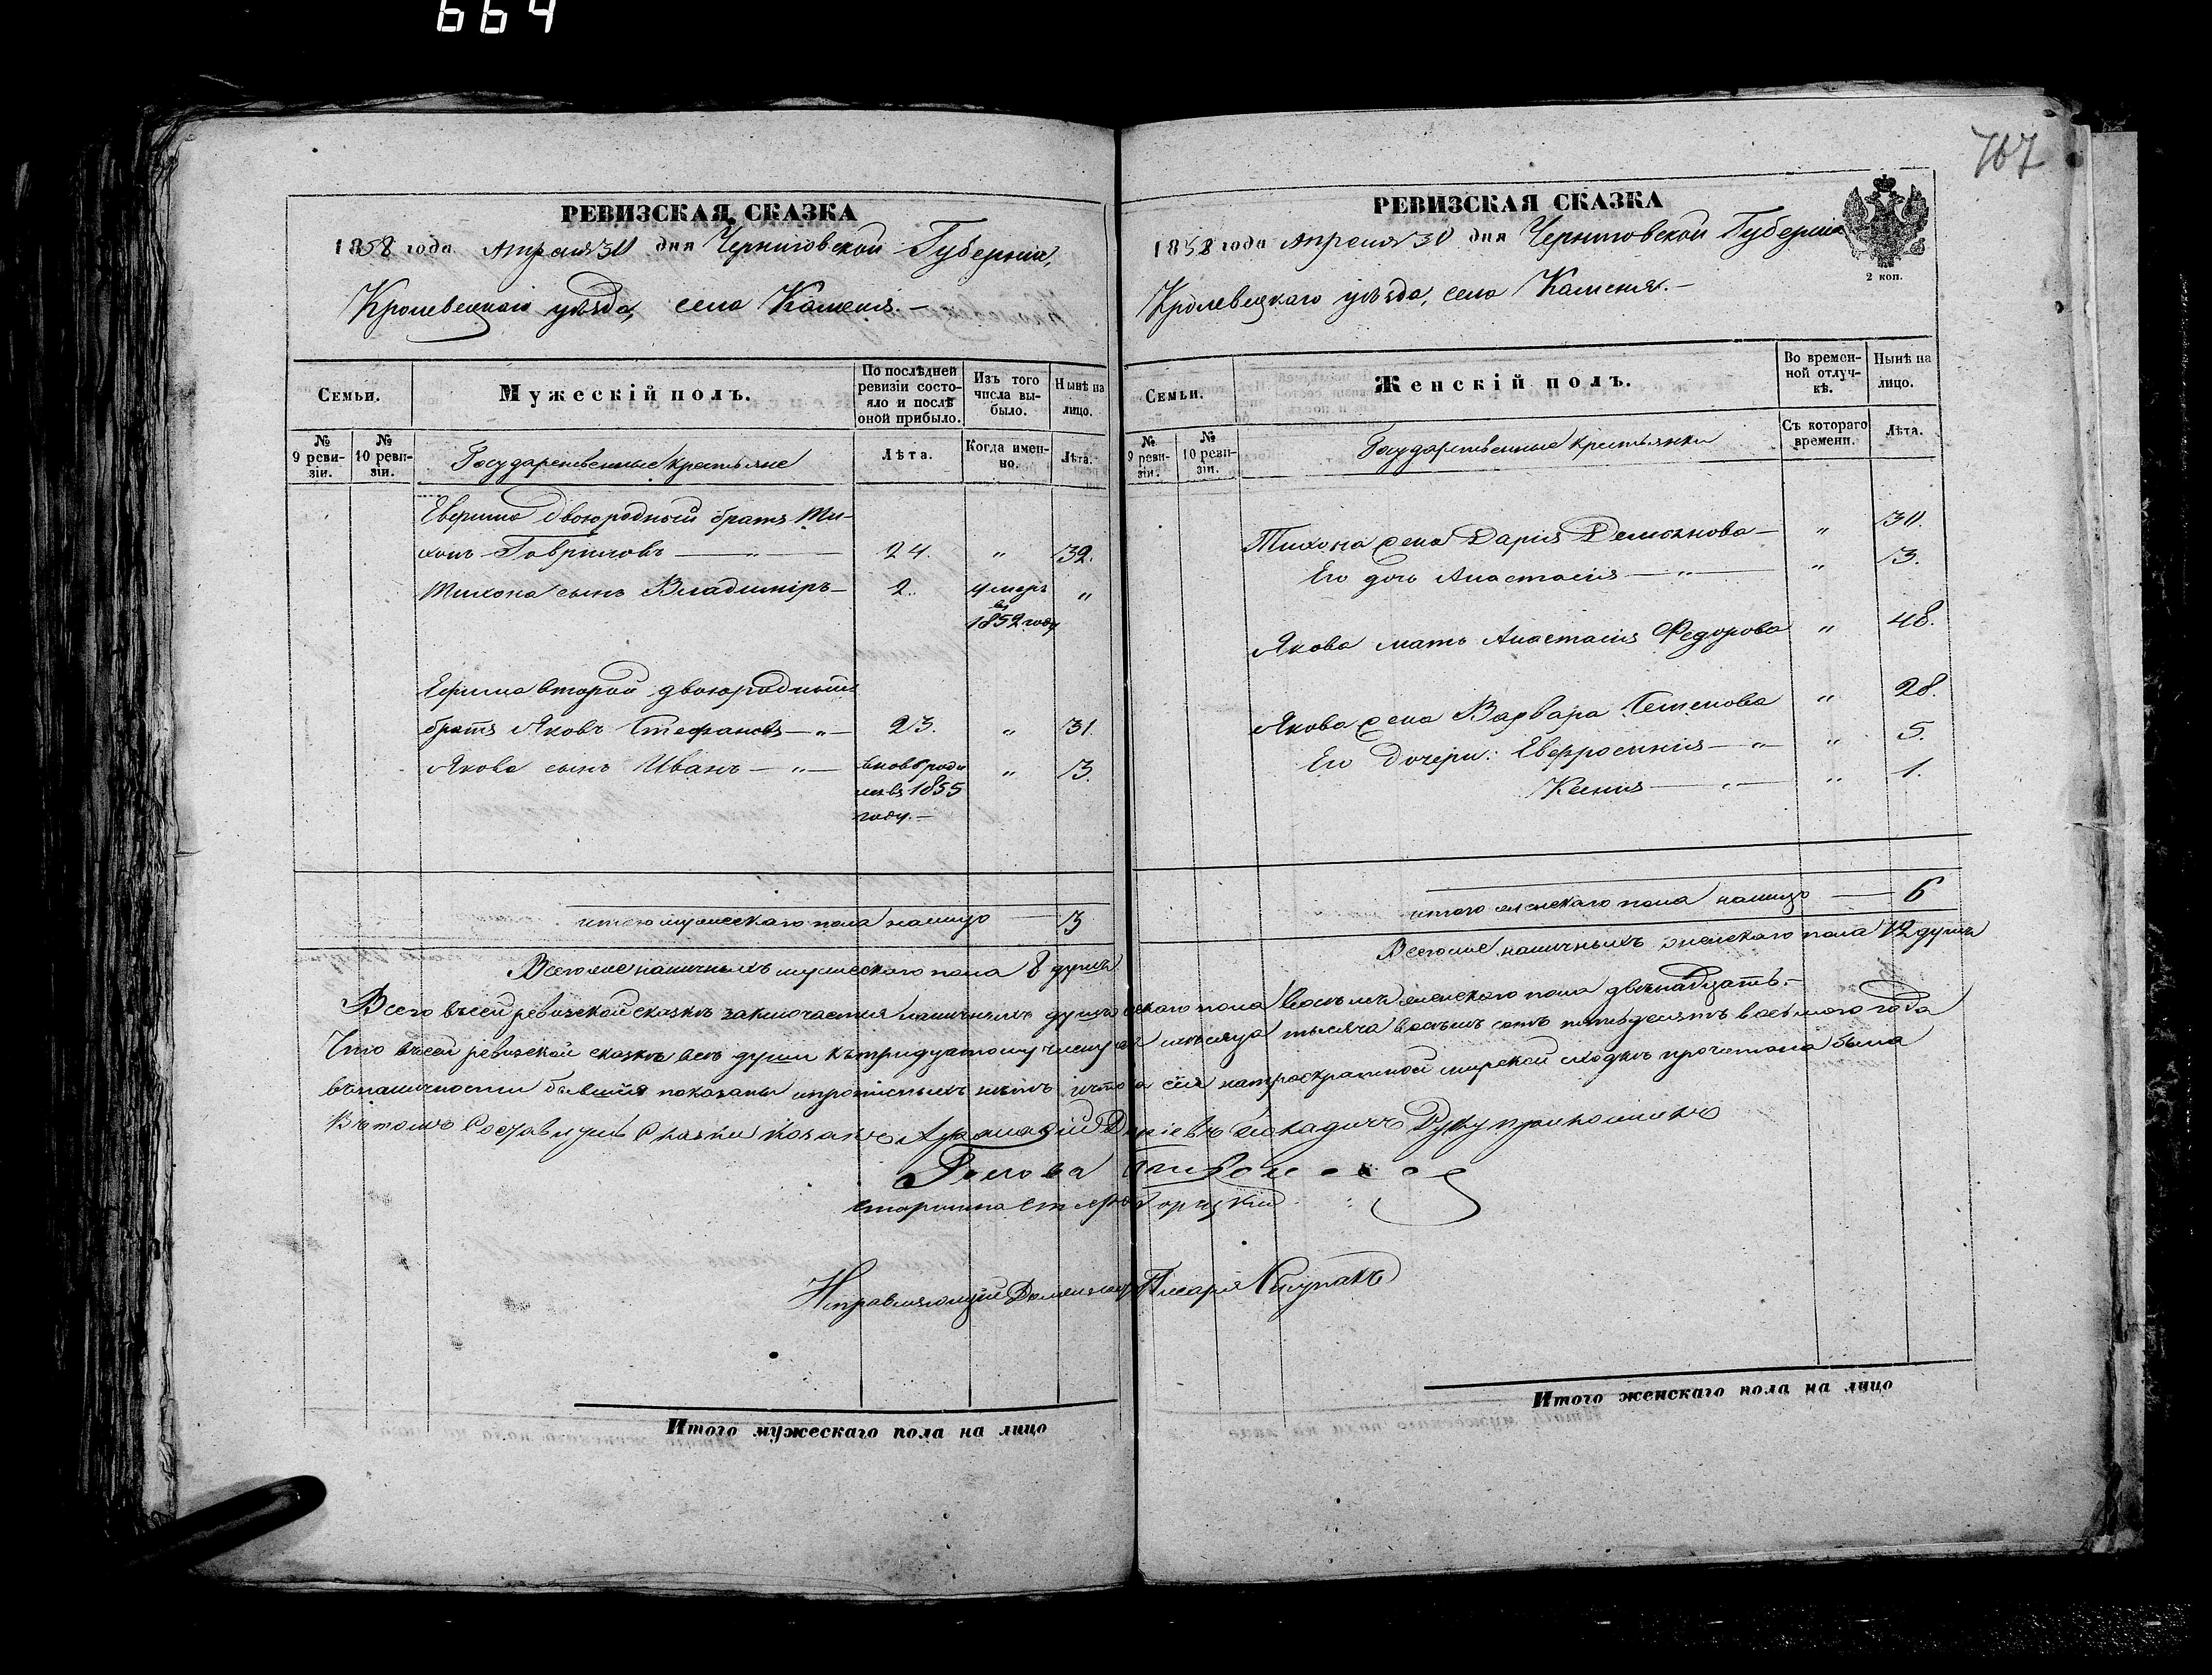 664
707
РЕВИЗСКАЯ СКАЗКА
1858 года Апреля 30 дня Черниговской Губернии,
Кролевецкаго уѣзда, села Каменя.—
Семьи.
Мужескій полъ.
По послѣдней ревизіи состояло и послѣ оной прибыло.
Изъ того числа выбыло.
Нынѣ на лицо.
№ 9 ревизіи.
№ 10 ревизіи.
Государственные крестьяне
Лѣта.
Когда именно.
Лѣта.
двоюродный братъ Ти-
хонъ Гавриловъ — „ — 24. „ 32.
Тихона сынъ Владиміръ — 2. умеръ въ 1852 году „
Ефима второй двоюродный
братъ Яковъ Стефановъ — „ — 23. „ 31.
Якова сынъ Иванъ — „ — вновь роди
лся въ 1855 „ 3.
году.—
итого мужескаго пола налицо 3
Всего же наличныхъ мужескаго пола 8 душъ
РЕВИЗСКАЯ СКАЗКА
1858 года Апреля 30 дня Черниговской Губернии
Кролевецкаго уѣзда, села Каменя.—
2 коп.
Семьи.
Женскій полъ.
Во временной отлучкѣ.
Нынѣ на лицо.
№ 9 ревизіи.
№ 10 ревизіи.
Государственные крестьянки
Съ котораго времени.
Лѣта.
Тихона жена Дарія — „ 30.
Его дочь Анастасія — „ — „ 3.
Якова мать Анастасія Федорова „ 48.
Якова жена Варвара Семенова „ 28.
Его дочери: Евфросинія — „ — „ 5.
Ксенія — „ — „ 1.
итого женскаго пола налицо — 6
Всего же наличныхъ женскаго пола 12 душъ
Всего въ сей ревизской сказкѣ заключается наличныхъ душъ пола восемь женскаго пола двѣнадцать.—
Что въ сей ревизской сказкѣ всѣ души къ тридцатому числу мѣсяца тысяча восемь сотъ пятьдесятъ восьмого года
въ наличности бывшія показаны и прописныхъ нѣтъ и что сія на троекратной мирской сходкѣ прочитана была
Въ томъ Составитель Сказки козакъ
Голова
старшина
Итого мужескаго пола на лицо
Итого женскаго пола на лицо